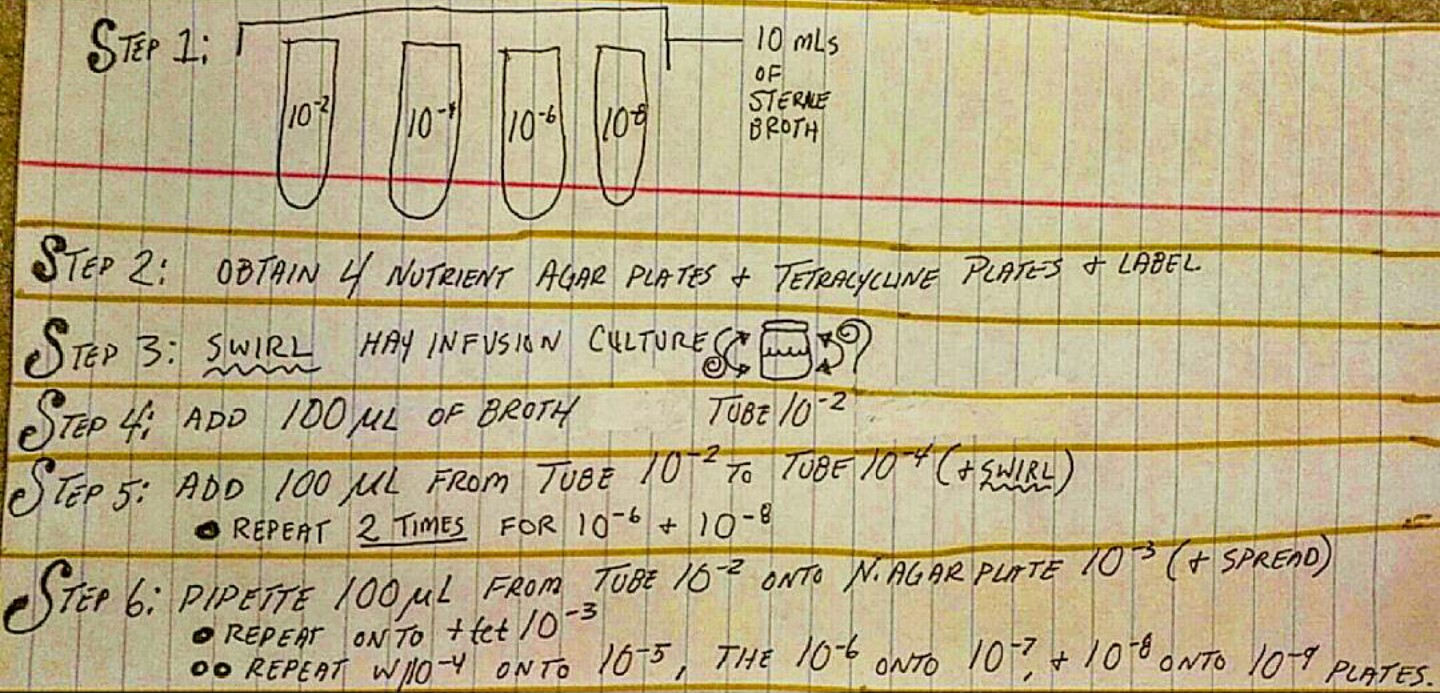 STEP 1:
10 mLs
OF
STERILE
BROTH
10⁻² 10⁻⁴ 10⁻⁶ 10⁻⁸
STEP 2: OBTAIN 4 NUTRIENT AGAR PLATES + TETRACYCLINE PLATES + LABEL
STEP 3: SWIRL HAY INFUSION CULTURE
STEP 4: ADD 100 µL OF BROTH TUBE 10⁻²
STEP 5: ADD 100 µL FROM TUBE 10⁻² TO TUBE 10⁻⁴ (+ SWIRL)
● REPEAT 2 TIMES FOR 10⁻⁶ + 10⁻⁸
STEP 6: PIPETTE 100 µL FROM TUBE 10⁻² ONTO N. AGAR PLATE 10⁻³ (+ SPREAD)
● REPEAT ONTO +tet 10⁻³
●● REPEAT W/10⁻⁴ ONTO 10⁻⁵, THE 10⁻⁶ ONTO 10⁻⁷, + 10⁻⁸ ONTO 10⁻⁹ PLATES.